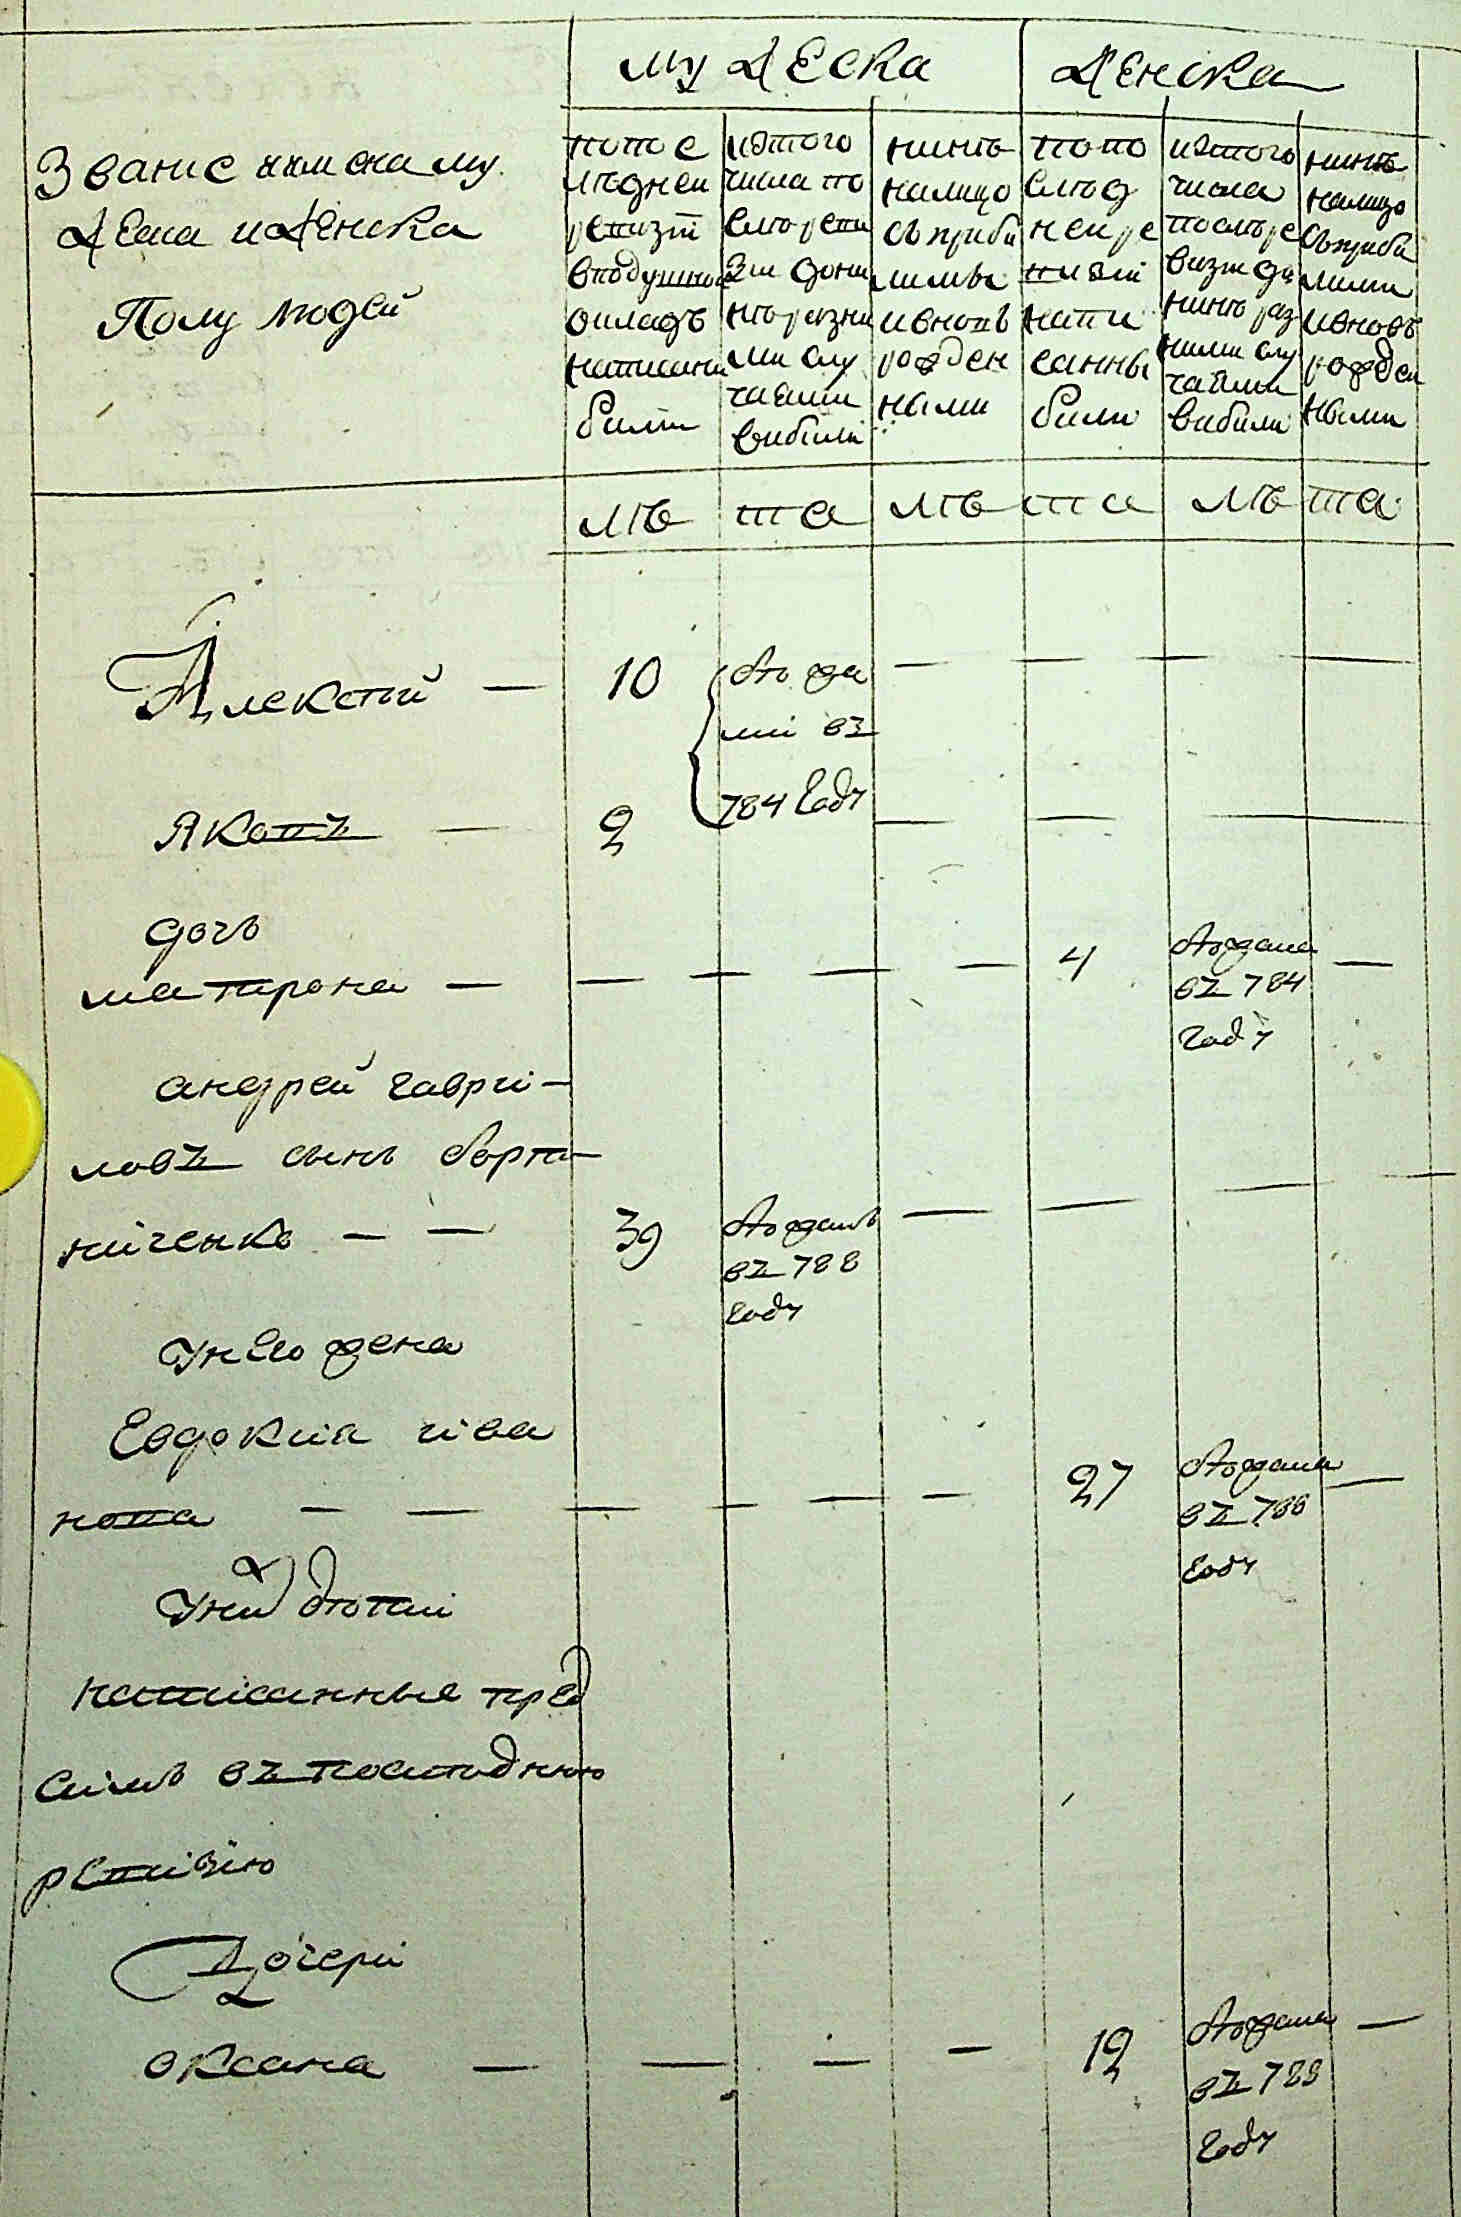 мужеска
женска
Звание иимена му
жеска иженска
Полу людей
попос
лѣдней
ревизіи
вподушной
окладъ
написани
били
изтого
числа по
слѣреви
зіи дони
нѣразни
ми слу
чаями
вибили
нинѣ
налицо
съприби
лими
ивновъ
рожден
ными
попо
слѣд
ней ре
визіи
напи
санны
били
изтого
числа
послѣре
визіи до
нинѣ раз
ними слу
чаями
вибили
нинѣ
налицо
съприби
лими
ивновъ
рожден
ными
лѣ та лѣ та лѣ та
Алексѣй — 10
ѣжда
ми въ
784 году
Яковъ — 2
дочь
матрона — — — — — 4
въ 784
году —
андрей гаври-
ловъ сынъ борт-
ниченко — — 39
въ 788
году
унего жена
Евдокиіа ива
нова — — — — — — 27
въ 788
году
Уних дѣтти
написанные пред
симъ въ последнюю
ревизію
Дочери
оксана — — — — 12
въ 788
году